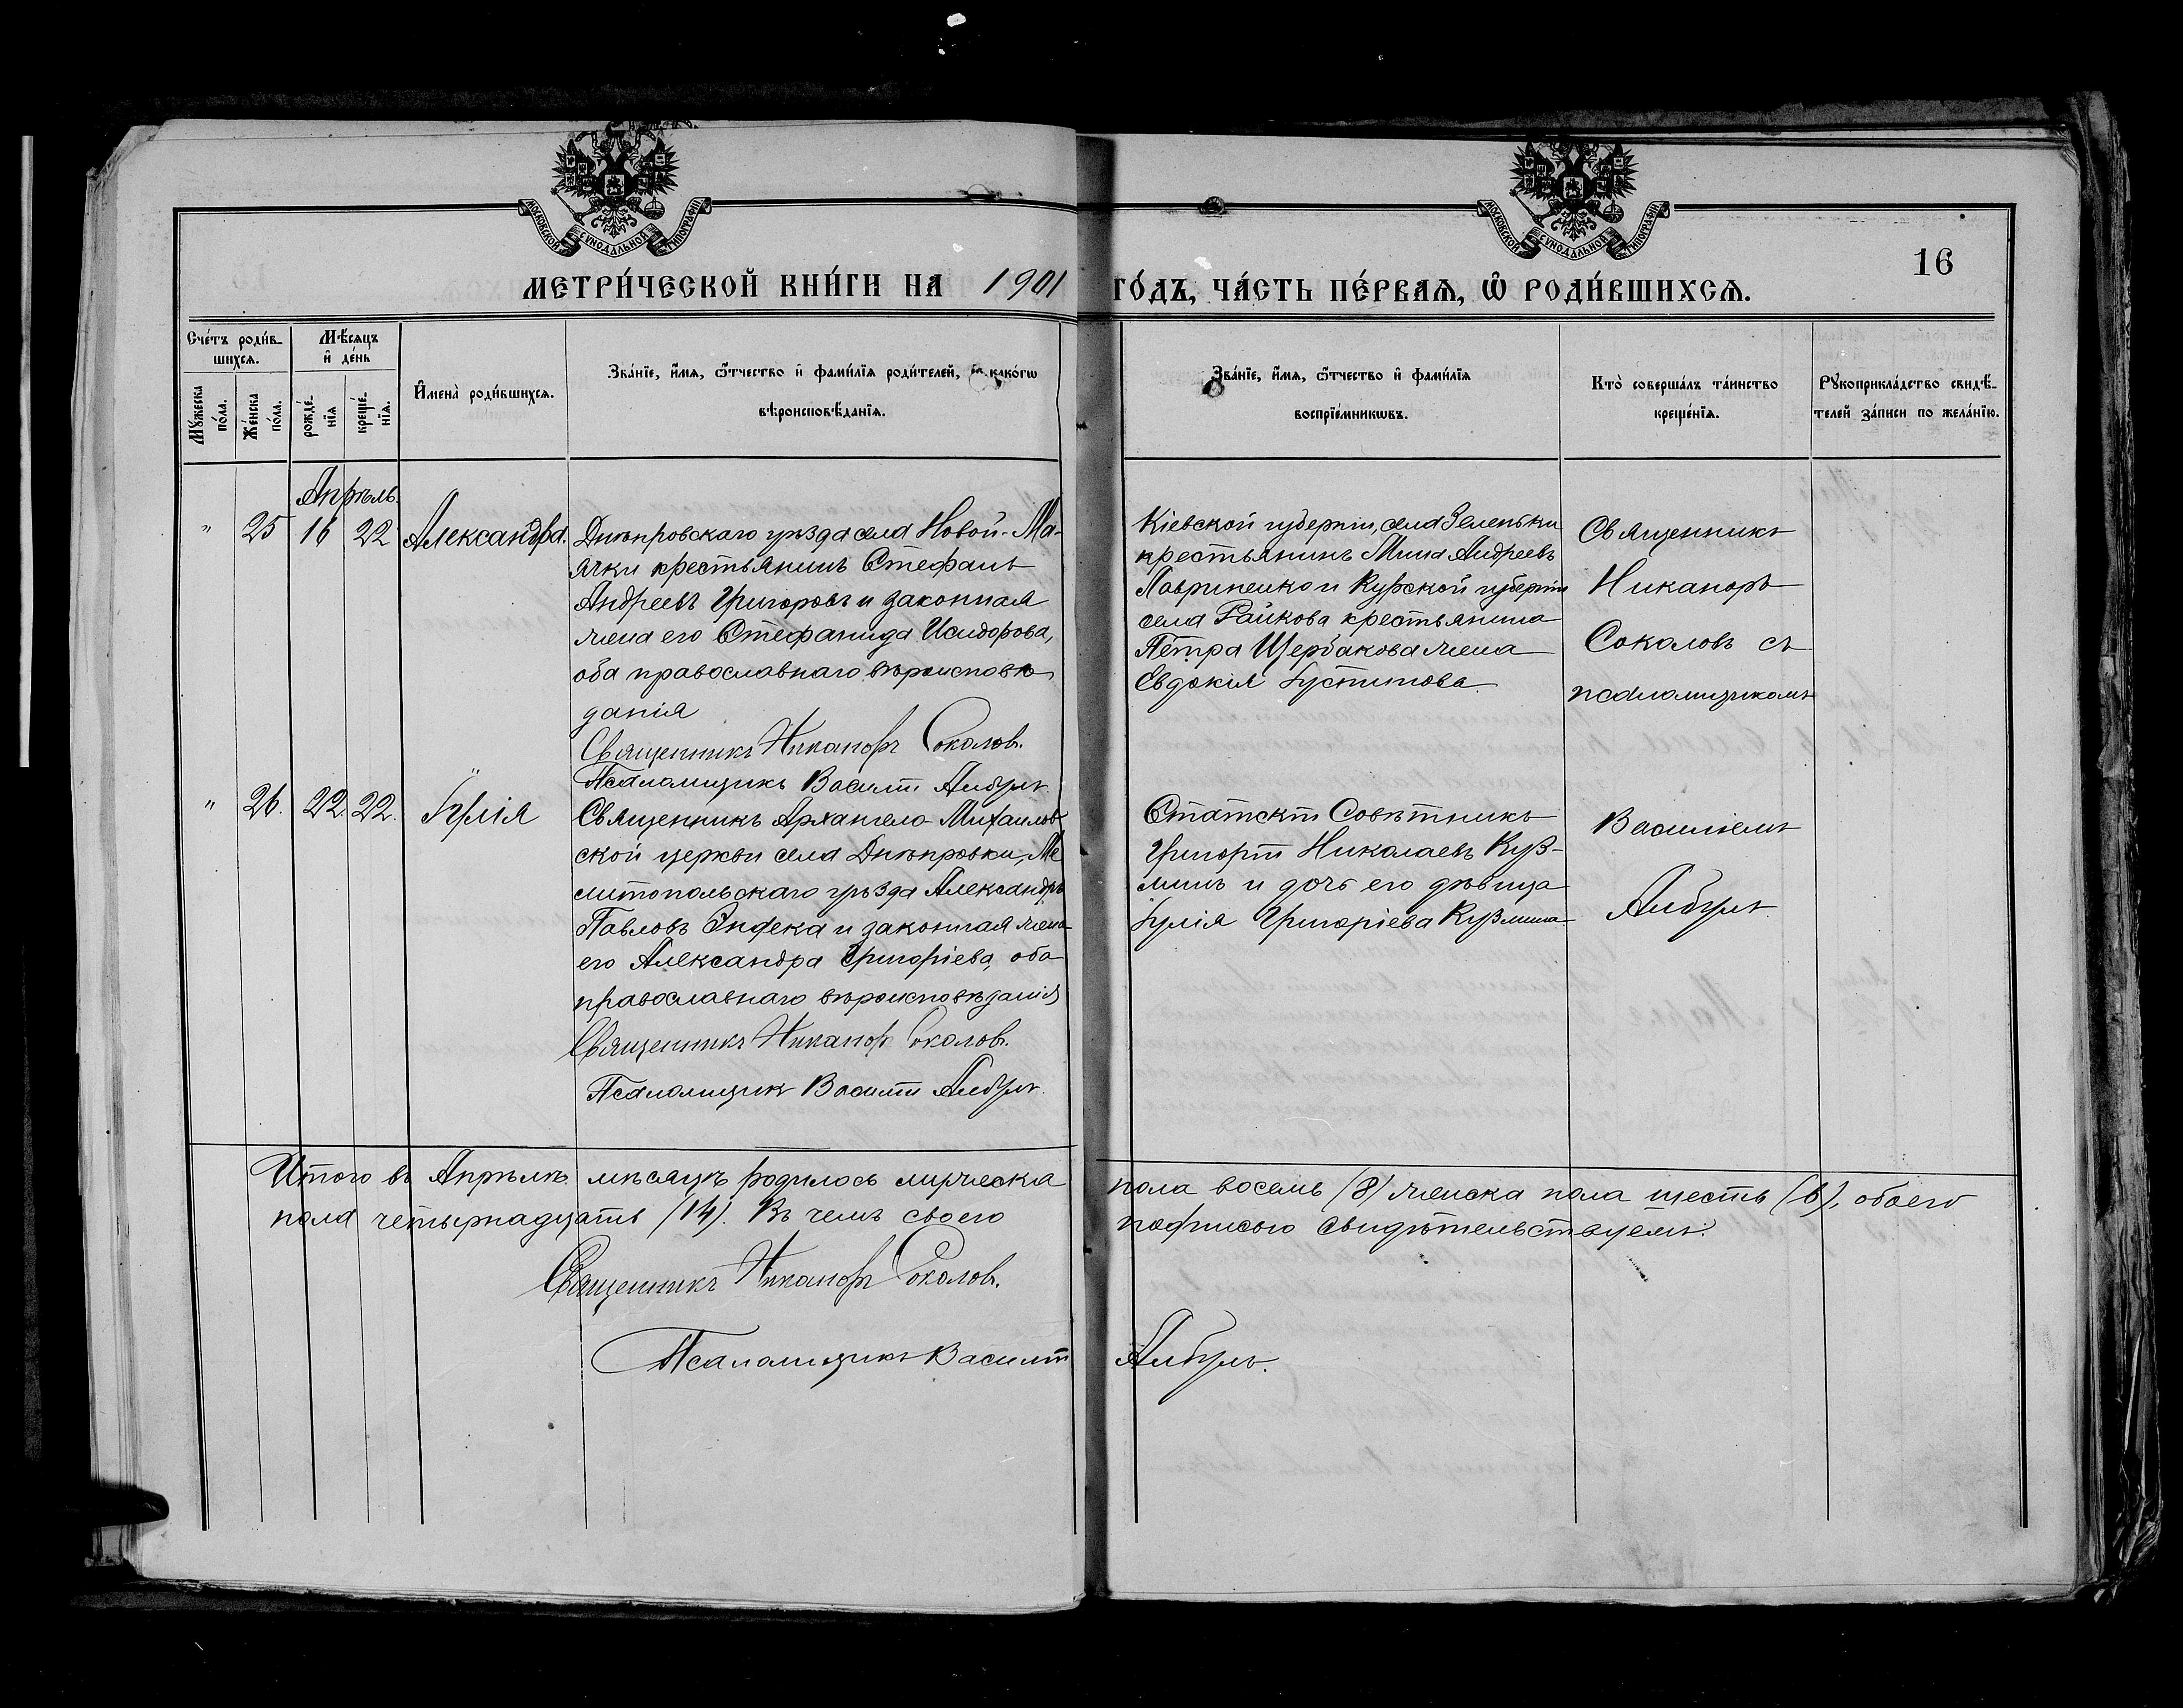 МОСКОВСКОЙ СУНОДАЛЬНОЙ ТИПОГРАФІИ
МОСКОВСКОЙ СУНОДАЛЬНОЙ ТИПОГРАФІИ
16
МЕТРИ́ЧЕСКОЙ КНИ́ГИ НА 1901 ГО́ДЪ, ЧА́СТЬ ПЕ́РВАѦ, Ѡ҆ РОДИ́ВШИХСѦ.
Сче́тъ роди́в-
шихсѧ.
Мꙋ́жеска по́ла.
Же́нска по́ла.
Мѣ́сѧцъ
и҆ де́нь
рожде́-
нїѧ
креще́-
нїѧ.
И҆мена̀ роди́вшихсѧ.
Зва́нїе, и҆́мѧ, ѻ҆́тчество и҆ фами́лїѧ роди́телей, и҆ како́гѡ
вѣроисповѣ́данїѧ.
Зва́нїе, и҆́мѧ, ѻ҆́тчество и҆ фами́лїѧ
воспрїе́мникѡвъ.
Кто̀ соверша́лъ та́инство
креще́нїѧ.
Рꙋкоприкла́дство свидѣ́-
телей за́писи по жела́нїю.
Апрѣль.
" 25 16 22 Александра.
Днѣпровскаго уѣзда села Новой-Ма-
ячки крестьянинъ Стефанъ
Андреевъ Григоровъ и законная
жена его Стефанида Исидорова,
оба православнаго вѣроисповѣ
данія
Священникъ Никаноръ Соколовъ.
Псаломщикъ Василій
Кіевской губерніи, села Зеленьки
крестьянинъ Мина Андреевъ
Лавриненко и Курской губерніи
села Райкова крестьянина
Петра Щербакова жена
Евдокія Іустинова.
Священникъ
Никаноръ
Соколовъ съ
псаломщикомъ
" 26. 22. 22. Іулія
Священникъ Архангело-Михаилов-
ской церкви села Днѣпровки, Ме
литопольскаго уѣзда Александръ
Павловъ Эндека и законная жена
его Александра Григоріева, оба
православнаго вѣроисповѣданія
Священникъ Никаноръ Соколовъ.
Псаломщикъ Василій
Статскій Совѣтникъ
Григорій Николаевъ Куз-
минъ и дочь его дѣвица
Іулія Григоріева Кузмина
Василіемъ
Итого въ Апрѣлѣ мѣсяцѣ родилось мужеска пола восемь (8) женска пола шесть (6), обоего
пола четырнадцать (14). Въ чемъ своею подписью свидѣтельствуемъ.
Священникъ Никаноръ Соколовъ.
Псаломщикъ Василій